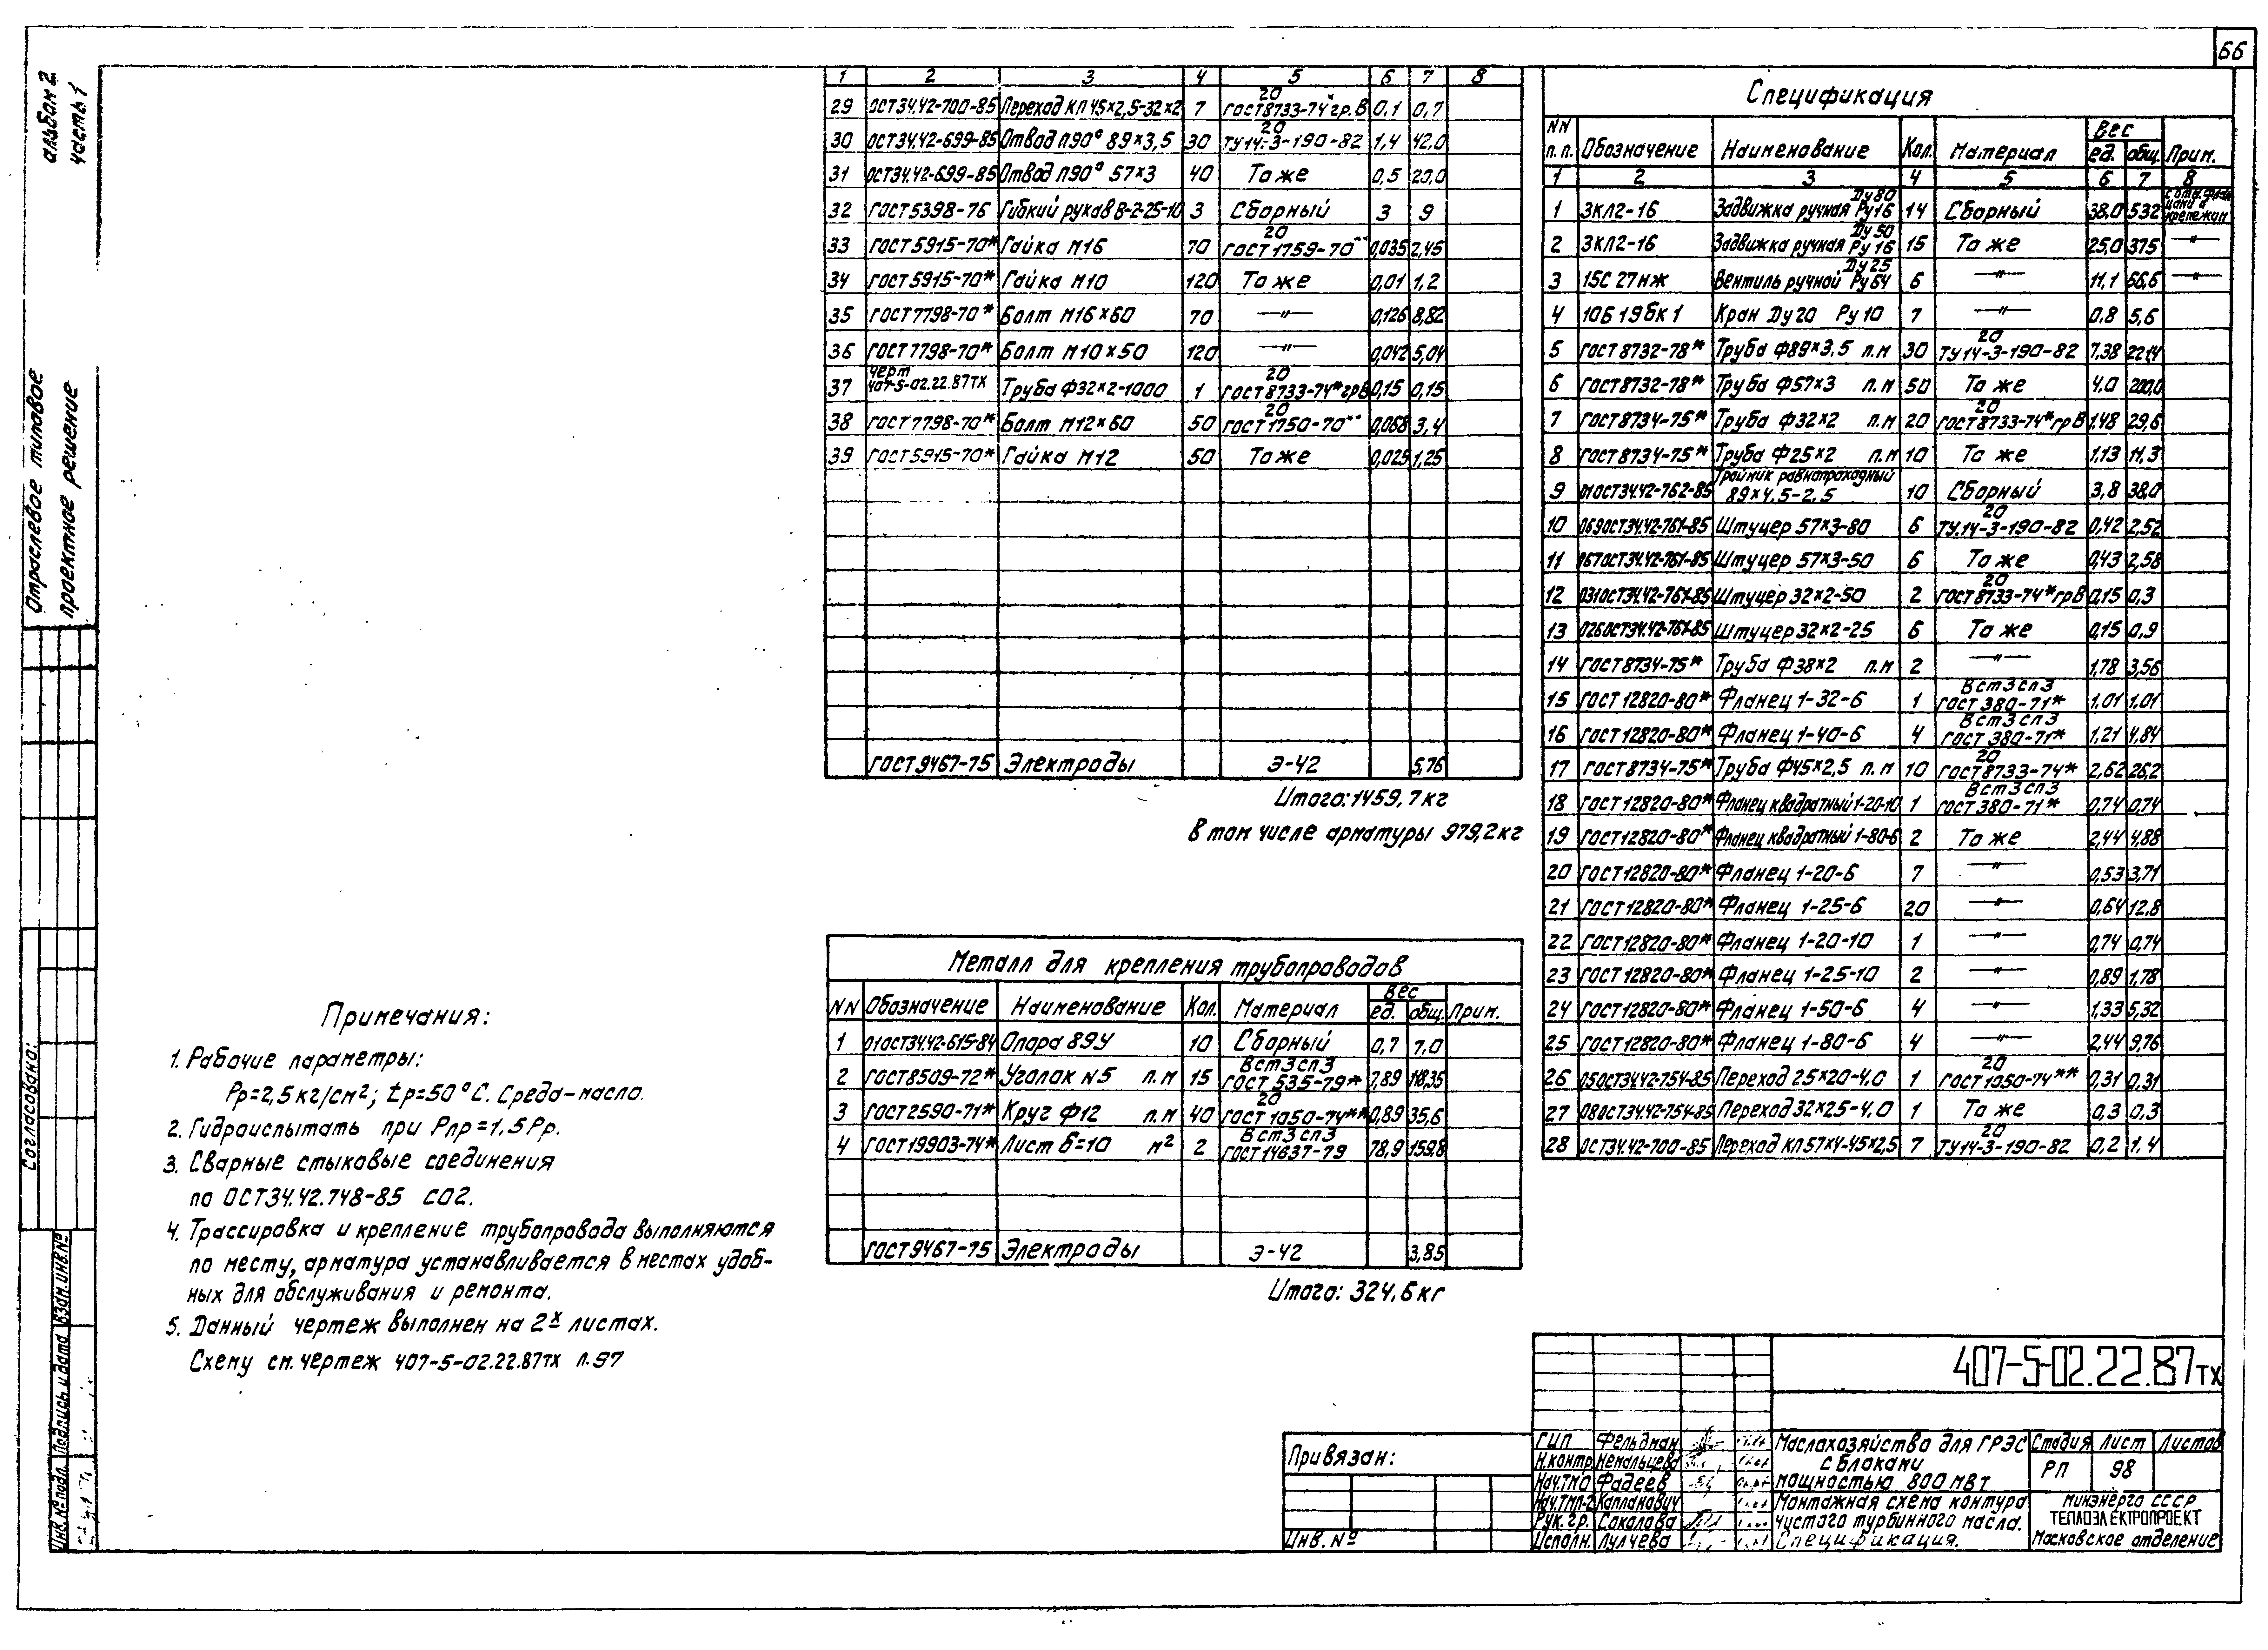 66
альбом 2
часть 1
Отраслевое типовое
проектное решение
Согласовано:
Взам. инв. №
Подпись и дата
Инв. № подл.
Спецификация
NN п.п. Обозначение Наименование Кол. Материал Вес ед. общ. Прим.
1 2 3 4 5 6 7 8
1 ЗКЛ2-16 Задвижка ручная Ду80 Ру16 14 Сборный 38,0 532
2 ЗКЛ2-16 Задвижка ручная Ду50 Ру16 15 То же 25,0 375 —"—
3 15С27нж Вентиль ручной Ду25 Ру64 6 —"— 11,1 66,6 —"—
4 10Б19бк1 Кран Ду20 Ру10 7 —"— 0,8 5,6
5 ГОСТ8732-78* Труба Ф89×3,5 п.м 30 20 ТУ14-3-190-82 7,38 221,4
6 ГОСТ8732-78* Труба Ф57×3 п.м 50 То же 4.0 200,0
7 ГОСТ8734-75* Труба Ф32×2 п.м 20 20 ГОСТ8733-74*грВ 1,48 29,6
8 ГОСТ8734-75* Труба Ф25×2 п.м 10 То же 1,13 11,3
9 01ОСТ34.42-762-85 Тройник равнопроходный 89×4,5-2,5 10 Сборный 3,8 38,0
10 069ОСТ34.42-761-85 Штуцер 57×3-80 6 20 ТУ.14-3-190-82 0,42 2,52
11 067ОСТ34.42-761-85 Штуцер 57×3-50 6 То же 0,43 2,58
12 031ОСТ34.42-761-85 Штуцер 32×2-50 2 20 ГОСТ8733-74*грВ 0,15 0,3
13 026ОСТ34.42-761-85 Штуцер 32×2-25 6 То же 0,15 0,9
14 ГОСТ8734-75* Труба Ф38×2 п.м 2 —"— 1,78 3,56
15 ГОСТ12820-80* Фланец 1-32-6 1 Вст3сп3 ГОСТ 380-71* 1,01 1,01
16 ГОСТ12820-80* Фланец 1-40-6 4 Вст3сп3 ГОСТ 380-71* 1,21 4,84
17 ГОСТ8734-75* Труба Ф45×2,5 п.м 10 20 ГОСТ8733-74* 2,62 26,2
18 ГОСТ12820-80* Фланец квадратный 1-20-10 1 Вст3сп3 ГОСТ380-71* 0,74 0,74
19 ГОСТ12820-80* Фланец квадратный 1-80-6 2 То же 2,44 4,88
20 ГОСТ12820-80* Фланец 1-20-6 7 —"— 0,53 3,71
21 ГОСТ12820-80* Фланец 1-25-6 20 —"— 0,64 12,8
22 ГОСТ12820-80* Фланец 1-20-10 1 —"— 0,74 0,74
23 ГОСТ12820-80* Фланец 1-25-10 2 —"— 0,89 1,78
24 ГОСТ12820-80* Фланец 1-50-6 4 —"— 1,33 5,32
25 ГОСТ12820-80* Фланец 1-80-6 4 —"— 2,44 9,76
26 050ОСТ34.42-754-85 Переход 25×20-4.0 1 20 ГОСТ1050-74** 0,31 0,31
27 080ОСТ34.42-754-85 Переход 32×25-4.0 1 То же 0,3 0,3
28 ОСТ34.42-700-85 Переход КП 57×4-45×2,5 7 20 ТУ14-3-190-82 0,2 1,4
1 2 3 4 5 6 7 8
29 ОСТ34.42-700-85 Переход КП 45×2,5-32×2 7 20 ГОСТ8733-74*гр.В 0,1 0,7
30 ОСТ34.42-699-85 Отвод П90° 89×3,5 30 20 ТУ14-3-190-82 1,4 42,0
31 ОСТ34.42-699-85 Отвод П90° 57×3 40 То же 0,5 20,0
32 ГОСТ5398-76 Гибкий рукав В-2-25-10 3 Сборный 3 9
33 ГОСТ5915-70* Гайка М16 70 20 ГОСТ1759-70** 0,035 2,45
34 ГОСТ5915-70* Гайка М10 120 То же 0,01 1,2
35 ГОСТ7798-70* Болт М16×60 70 —"— 0,126 8,82
36 ГОСТ7798-70* Болт М10×50 120 —"— 0,042 5,04
37 черт 407-5-02.22.87ТХ Труба Ф32×2-1000 1 20 ГОСТ8733-74*грВ 0,15 0,15
38 ГОСТ7798-70* Болт М12×60 50 20 ГОСТ1750-70** 0,068 3,4
39 ГОСТ5915-70* Гайка М12 50 То же 0,025 1,25
ГОСТ9467-75 Электроды Э-42 5,76
Итого: 1459,7кг
В том числе арматуры 979,2кг
Металл для крепления трубопроводов
NN Обозначение Наименование Кол. Материал Вес ед. общ. Прим.
1 01ОСТ34.42-615-84 Опора 89У 10 Сборный 0,7 7,0
2 ГОСТ8509-72* Уголок N5 п.м 15 Вст3сп3 ГОСТ 535-79* 7,89 118,35
3 ГОСТ2590-71* Круг Ф12 п.м 40 20 ГОСТ1050-74** 0,89 35,6
4 ГОСТ19903-74* Лист б=10 м² 2 Вст3сп3 ГОСТ14637-79 78,9 159,8
ГОСТ9467-75 Электроды Э-42 3,85
Итого: 324,6кг
Примечания:
1. Рабочие параметры:
Рр=2,5кг/см²; tр=50°С. Среда-масло.
2. Гидроиспытать при Рпр=1,5Рр.
3. Сварные стыковые соединения
по ОСТ34.42.748-85 С02.
4. Трассировка и крепление трубопровода выполняются
по месту, арматура устанавливается в местах удоб-
ных для обслуживания и ремонта.
5. Данный чертеж выполнен на 2х листах.
Схему см. чертеж 407-5-02.22.87ТХ л.97
407-5-02.22.87ТХ
Привязан:
Инв. №
ГИП Фельдман
Н.контр. Немальцева
Нач.ТМО Фадеев
Нач.ТМП-2 Капланович
Рук.гр. Соколова
Исполн. Лулчева
Маслохозяйство для ГРЭС
с блоками
мощностью 800 МВт
Стадия Лист Листов
РП 98
Монтажная схема контура
чистого турбинного масла.
Спецификация.
МИНЭНЕРГО СССР
ТЕПЛОЭЛЕКТРОПРОЕКТ
Московское отделение